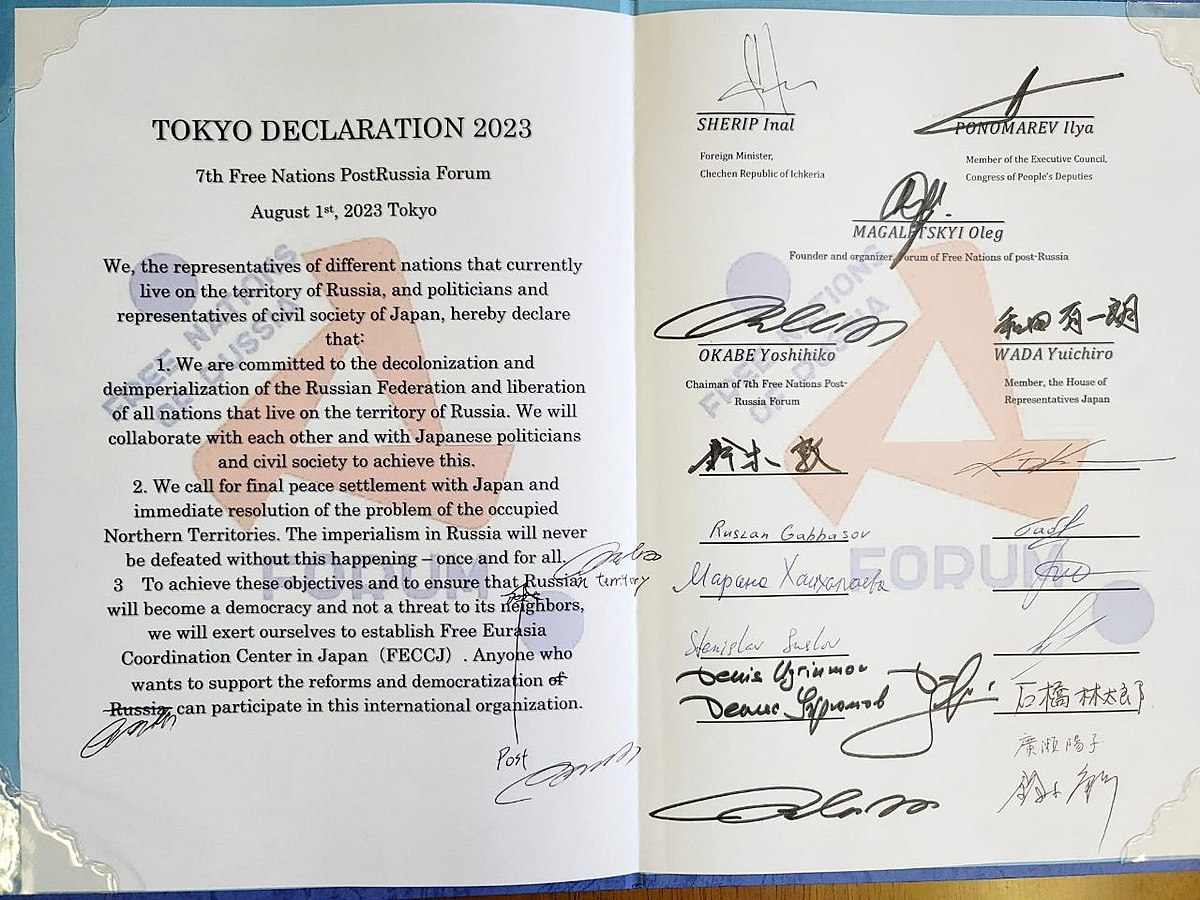 TOKYO DECLARATION 2023
7th Free Nations PostRussia Forum
August 1st, 2023 Tokyo
We, the representatives of different nations that currently
live on the territory of Russia, and politicians and
representatives of civil society of Japan, hereby declare
that:
1. We are committed to the decolonization and
deimperialization of the Russian Federation and liberation
of all nations that live on the territory of Russia. We will
collaborate with each other and with Japanese politicians
and civil society to achieve this.
2. We call for final peace settlement with Japan and
immediate resolution of the problem of the occupied
Northern Territories. The imperialism in Russia will never
be defeated without this happening – once and for all.
3 To achieve these objectives and to ensure that Russian territory
will become a democracy and not a threat to its neighbors,
we will exert ourselves to establish Free Eurasia
Coordination Center in Japan（FECCJ）. Anyone who
wants to support the reforms and democratization of
Russia can participate in this international organization.
Post
FREE NATIONS
OF RUSSIA
FORUM
SHERIP Inal
Foreign Minister,
Chechen Republic of Ichkeria
PONOMAREV Ilya
Member of the Executive Council,
Congress of People's Deputies
MAGALETSKYI Oleg
Founder and organizer, Forum of Free Nations of post-Russia
OKABE Yoshihiko
Chaiman of 7th Free Nations Post-
Russia Forum
和田有一朗
WADA Yuichiro
Member, the House of
Representatives Japan
鈴木敦
Ruszan Gabbasov
Марина Ханхалаева
Stanislav Suslov
Denis Ugrimov
Денис Угрюмов
石橋林太郎
廣瀬陽子
FREE NATIONS
OF RUSSIA
FORUM